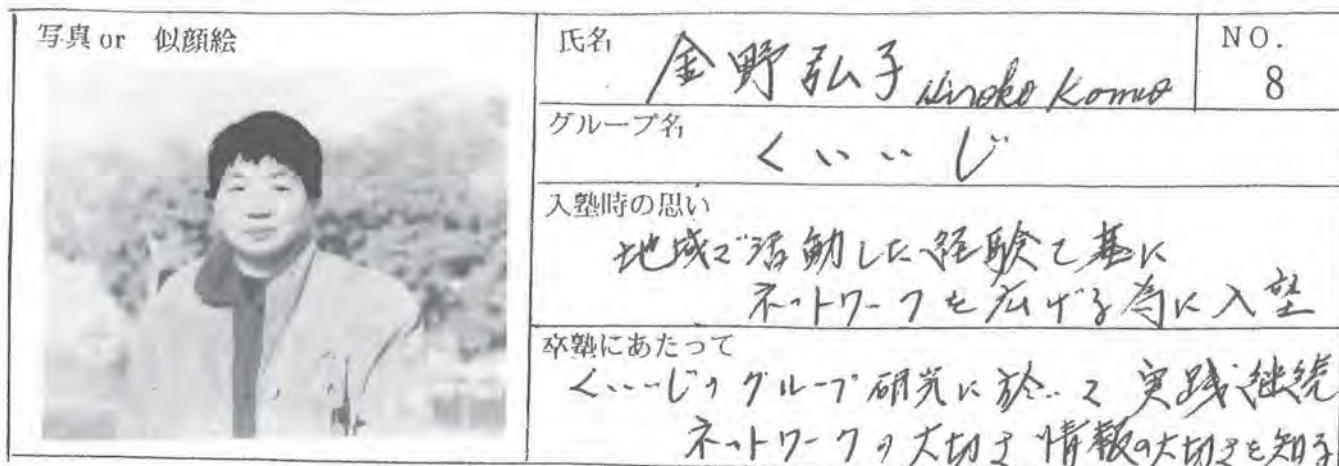 写真 or 似顔絵
氏名 金野弘子 Hiroko Konno
NO.
8
グループ名
くいいじ
入塾時の思い
地域で活動した経験を基に
ネットワークを広げる為に入塾
卒塾にあたって
くいいじのグループ研究に於いて 実践、継続
ネットワークの大切さ 情報の大切さを知る